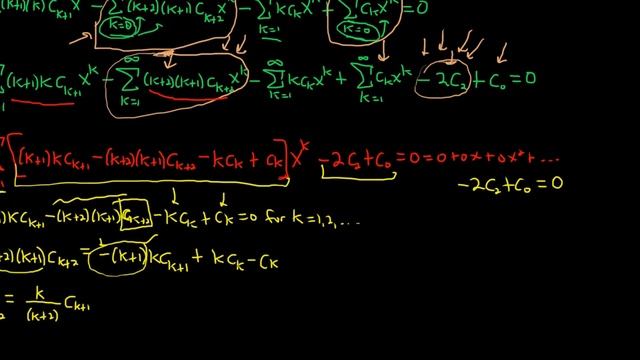 (k+1)(k) C_{k+1} x^k - ∑_{k=0} (k+2)(k+1) C_{k+2} x^k - ∑_{k=1} k C_k x^k + ∑_{k=0} C_k x^k = 0
(k+1) k C_{k+1} x^k - ∑_{k=1}^∞ (k+2)(k+1) C_{k+2} x^k - ∑_{k=1}^∞ k C_k x^k + ∑_{k=1}^∞ C_k x^k - 2C_2 + C_0 = 0
[(k+1) k C_{k+1} - (k+2)(k+1) C_{k+2} - k C_k + C_k] x^k - 2C_2 + C_0 = 0 = 0 + 0x + 0x^2 + ...
-2C_2 + C_0 = 0
k C_{k+1} - (k+2)(k+1) C_{k+2} - k C_k + C_k = 0 for k = 1, 2, ...
2)(k+1) C_{k+2} = -(k+1) k C_{k+1} + k C_k - C_k
= k/(k+2) C_{k+1}